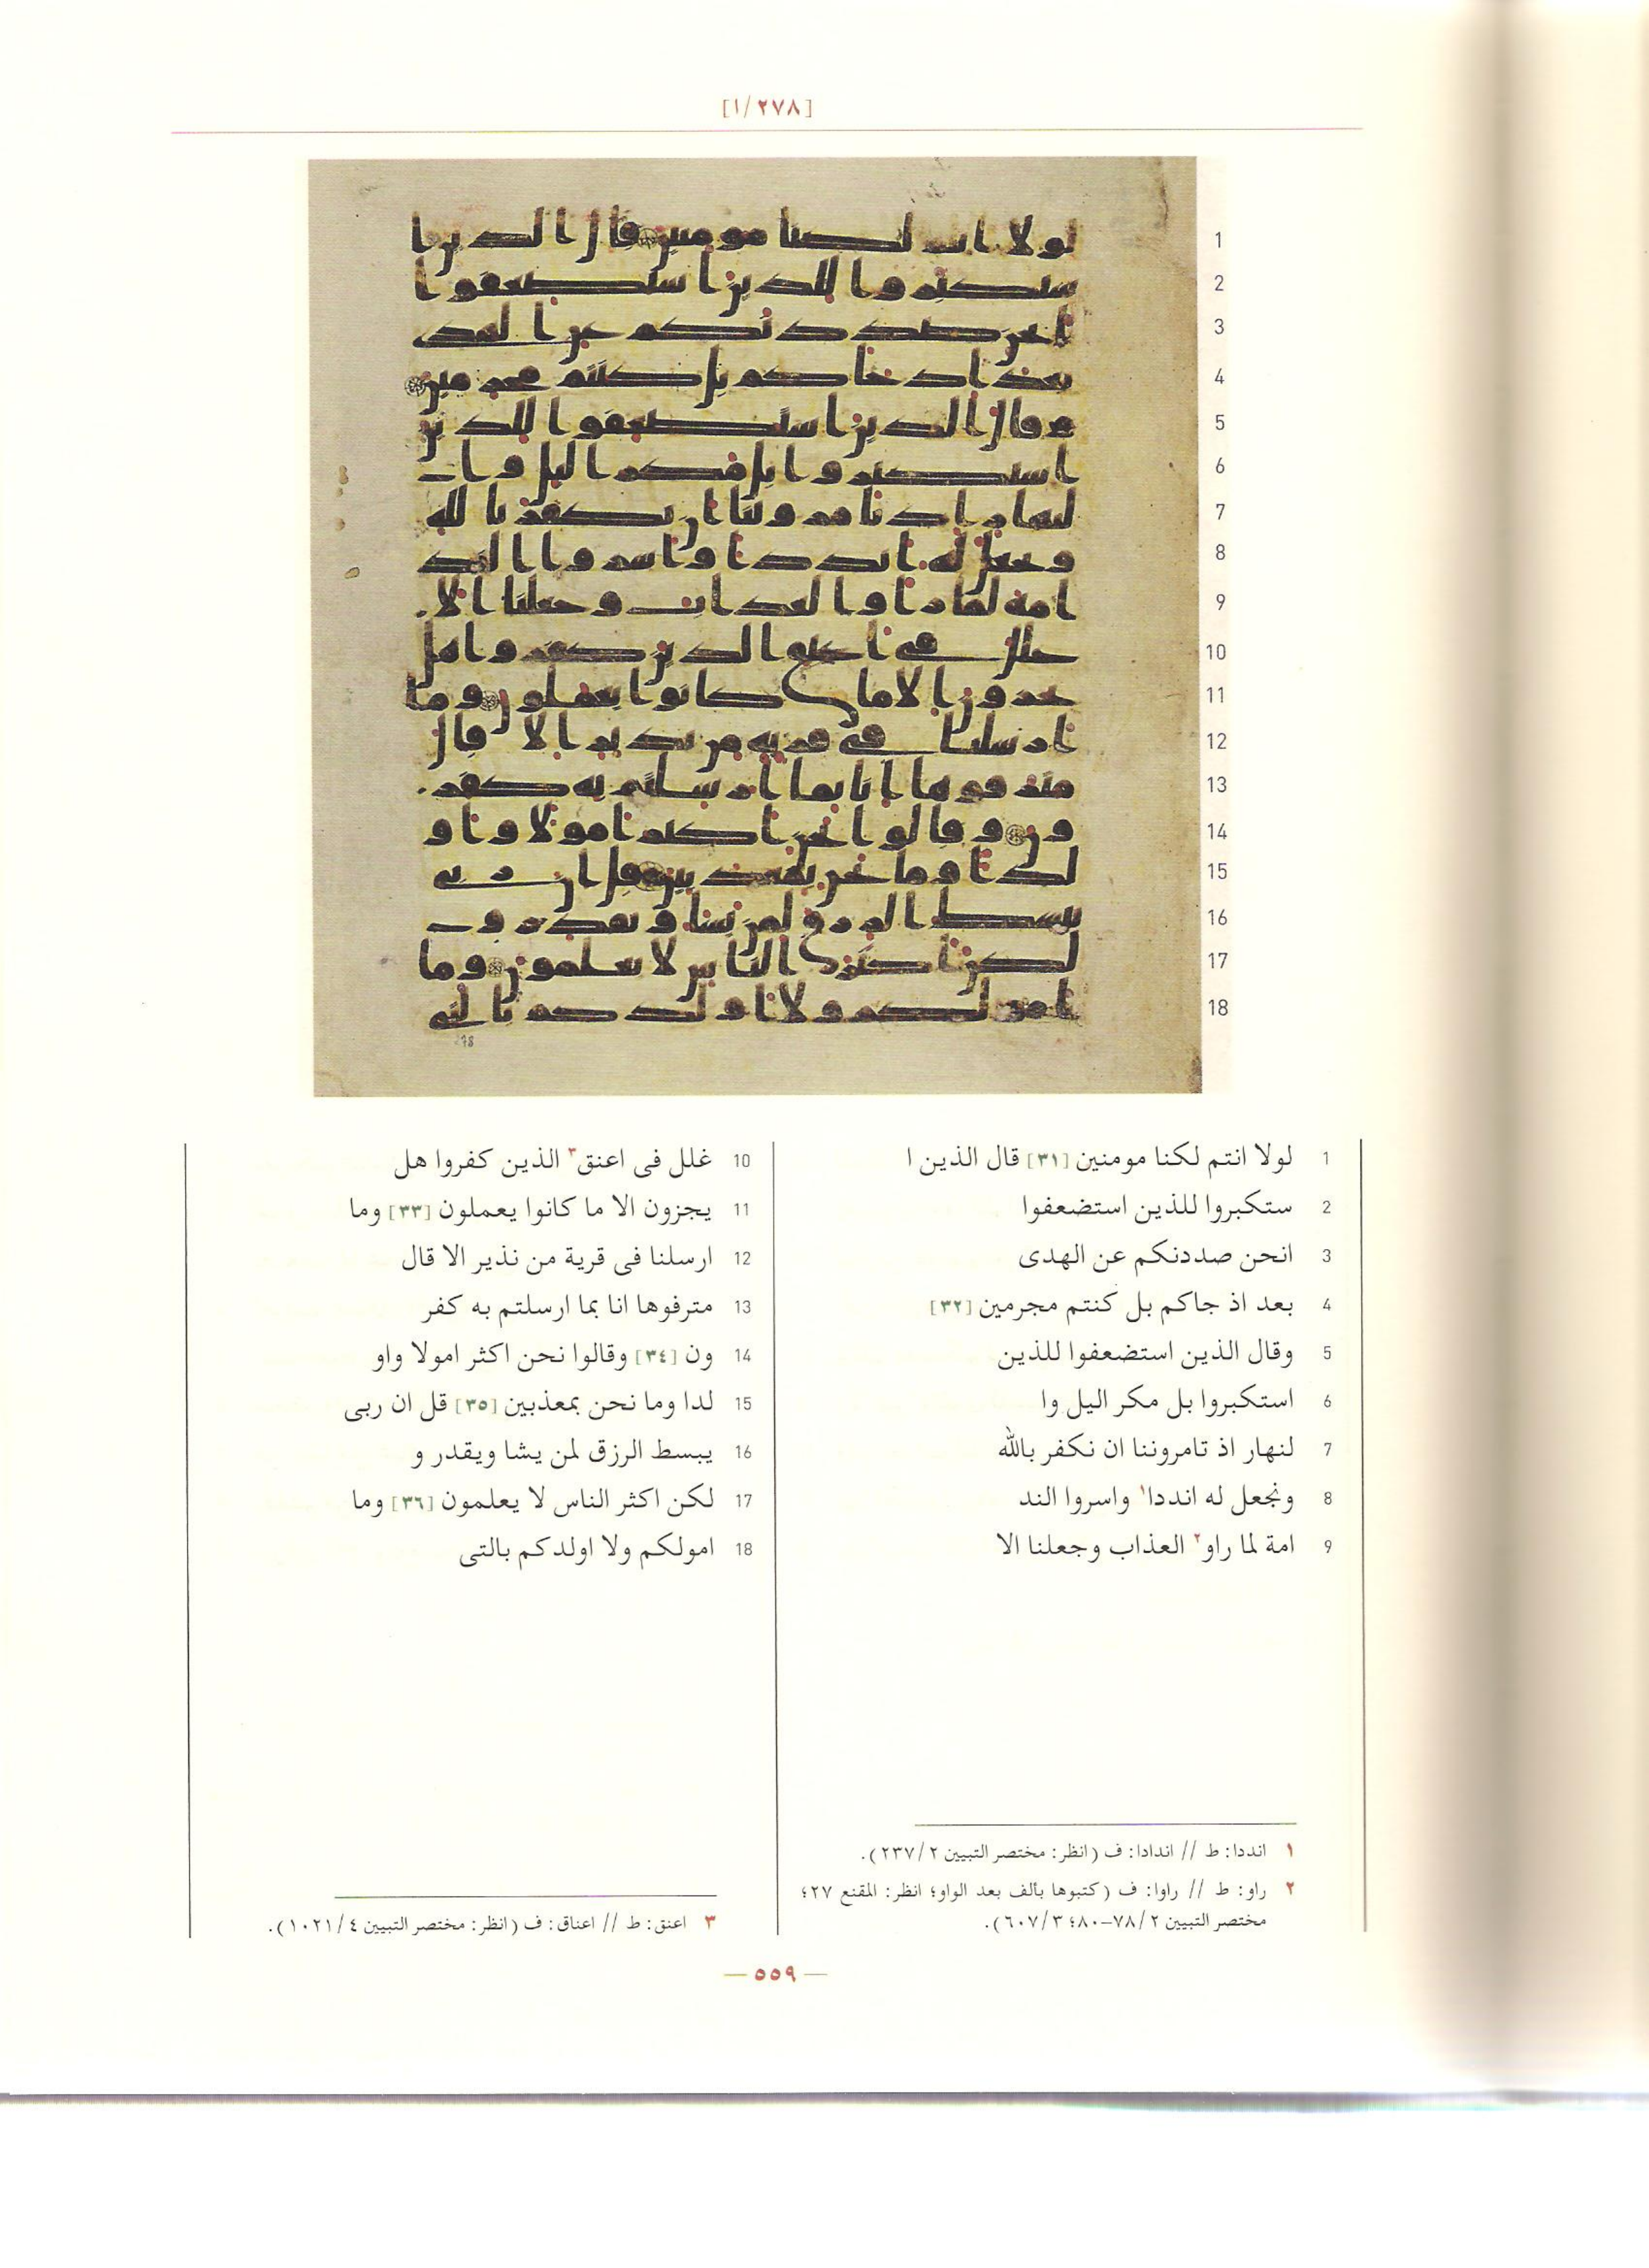 [٢٧٨/١]
1 لولا انتم لكنا مومنين [٣١] قال الذين ا
2 ستكبروا للذين استضعفوا
3 انحن صددنكم عن الهدى
4 بعد اذ جاكم بل كنتم مجرمين [٣٢]
5 وقال الذين استضعفوا للذين
6 استكبروا بل مكر اليل وا
7 لنهار اذ تامروننا ان نكفر بالله
8 ونجعل له انددا١ واسروا الند
9 امة لما راو٢ العذاب وجعلنا الا
10 غلل فى اعنق٣ الذين كفروا هل
11 يجزون الا ما كانوا يعملون [٣٣] وما
12 ارسلنا فى قرية من نذير الا قال
13 مترفوها انا بما ارسلتم به كفر
14 ون [٣٤] وقالوا نحن اكثر امولا واو
15 لدا وما نحن بمعذبين [٣٥] قل ان ربى
16 يبسط الرزق لمن يشا ويقدر و
17 لكن اكثر الناس لا يعلمون [٣٦] وما
18 امولكم ولا اولدكم بالتى
١ انددا: ط // اندادا: ف (انظر: مختصر التبيين ٢/٢٣٧).
٢ راو: ط // راوا: ف (كتبوها بألف بعد الواو؛ انظر: المقنع ٢٧؛
مختصر التبيين ٢/٧٨-٨٠؛ ٣/٦٠٧).
٣ اعنق: ط // اعناق: ف (انظر: مختصر التبيين ٤/١٠٢١).
— ٥٥٩ —